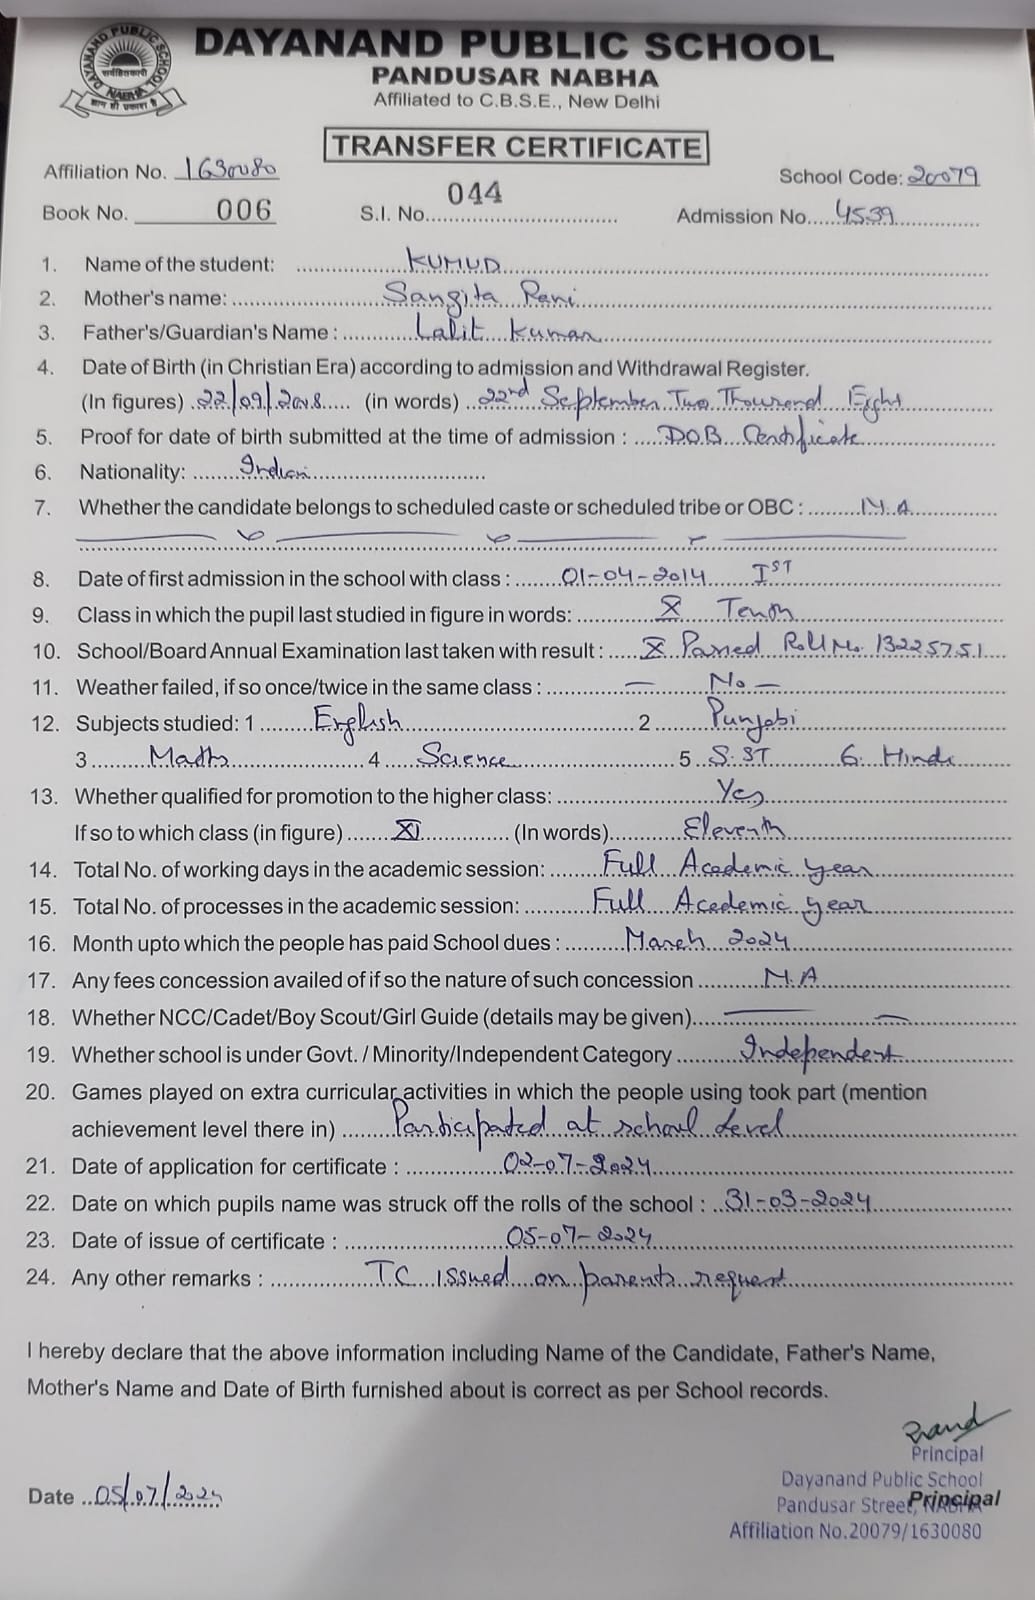 DAYANAND PUBLIC SCHOOL
NABHA
सर्वहितकारी
ज्ञान ही प्रकाश है
DAYANAND PUBLIC SCHOOL
PANDUSAR NABHA
Affiliated to C.B.S.E., New Delhi
TRANSFER CERTIFICATE
Affiliation No. 1630080 School Code: 20079
Book No. 006 S.I. No. 044 Admission No. 4539
1. Name of the student: KUMUD
2. Mother's name: Sangita Rani
3. Father's/Guardian's Name : Lalit Kumar
4. Date of Birth (in Christian Era) according to admission and Withdrawal Register.
(In figures) 22/09/2008 (in words) 22nd September Two Thousand Eight
5. Proof for date of birth submitted at the time of admission : D.O.B. Certificate
6. Nationality: Indian
7. Whether the candidate belongs to scheduled caste or scheduled tribe or OBC : N.A.
8. Date of first admission in the school with class : 01-04-2014 IST
9. Class in which the pupil last studied in figure in words: X Tenth
10. School/Board Annual Examination last taken with result : X Passed Roll No. 13225751
11. Weather failed, if so once/twice in the same class : — No —
12. Subjects studied: 1 English 2 Punjabi
3 Maths 4 Science 5 S.ST 6. Hindi
13. Whether qualified for promotion to the higher class: Yes
If so to which class (in figure) XI (In words) Eleventh
14. Total No. of working days in the academic session: Full Academic year
15. Total No. of processes in the academic session: Full Academic year
16. Month upto which the people has paid School dues : March 2024
17. Any fees concession availed of if so the nature of such concession N.A
18. Whether NCC/Cadet/Boy Scout/Girl Guide (details may be given) —
19. Whether school is under Govt. / Minority/Independent Category Independent
20. Games played on extra curricular activities in which the people using took part (mention
achievement level there in) Participated at school level
21. Date of application for certificate : 02-07-2024
22. Date on which pupils name was struck off the rolls of the school : 31-03-2024
23. Date of issue of certificate : 05-07-2024
24. Any other remarks : T.C issued on parents request
I hereby declare that the above information including Name of the Candidate, Father's Name,
Mother's Name and Date of Birth furnished about is correct as per School records.
Principal
Dayanand Public School
Date 05/07/2024 Pandusar Street, NABHA Principal
Affiliation No.20079/1630080